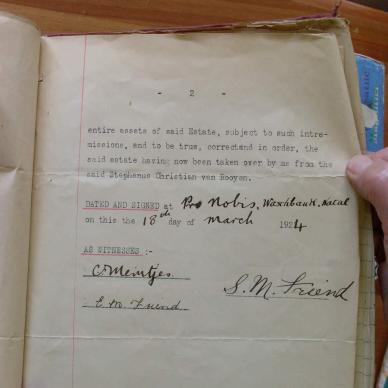 - 2 -
entire assets of said Estate, subject to such intro-
missions, and to be true, correctand in order, the
said estate having now been taken over by me from the
said Stephanus Christian van Rooyen.
DATED AND SIGNED at Pro Nobis, Waschbank, Natal
on this the 18th day of March 1924
AS WITNESSES :-
C Meintjes
S. M. Friend
E M Friend